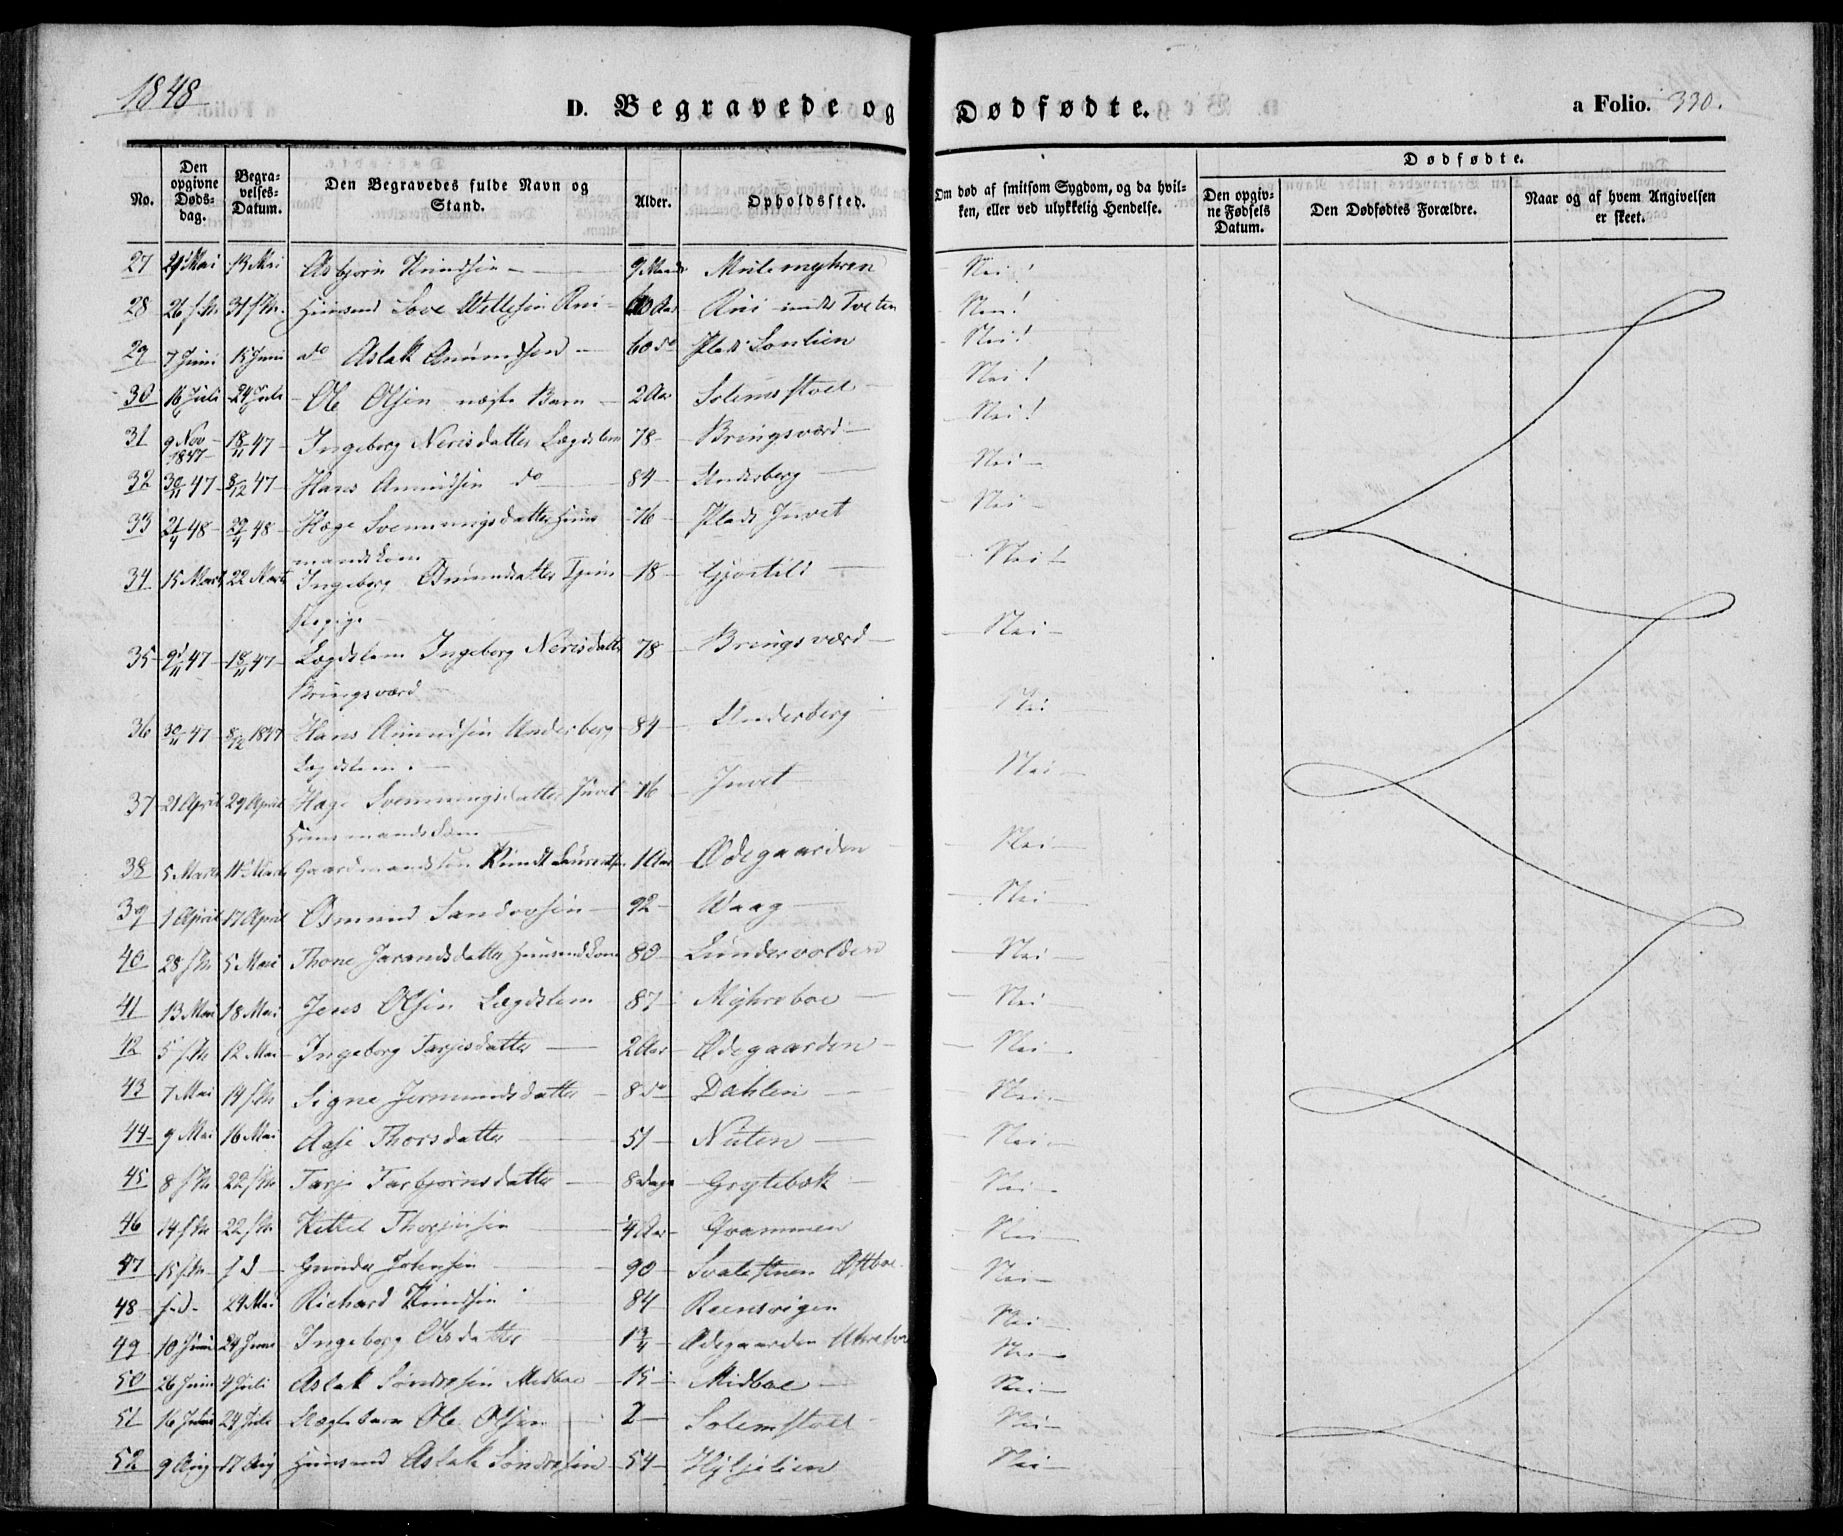 1848
D. Begravede og Dødfødte. a Folio. 330.
No. Den opgivne Døds-dag. Begra-velses-Datum. Den Begravedes fulde Navn og Stand. Alder. Opholdsfted. Om død af smitsom Sygdom, og da hvil-ken, eller ved ulykkelig Hendelse. Dødfødte. Den opgiv-ne Fødsels Datum. Den Dødfødtes Forældre. Naar og af hvem Angivelsen er skeet.
27 Mai 13 Mai Asbjørn Knudsen 9 Maaned Mulemyhren Nei!
28 26 31 Huusmd Rui Aar Rui under Tveten Nei!
29 7 Juni 15 Juni do Aslak Amundsen 60 do Plads Nei!
30 16 Juli 24 Juli Ole Olsen Barn 2 Aar Solemstoel Nei!
31 9 Nov 1847 18/11 47 Ingeborg Nerisdatter Lægdslem 78 Bringsværd Nei!
32 30/11 47 8/12 47 Hans Amundsen do 84 Underberg Nei
33 21/4 48 29/4 48 Hæge Svenningsdatter Huus
mandskone 76 Plads Juvet Nei
34 15 Marts 22 Marts Ingeborg Osmundsdatter Tjene
stepige 18 Nei!
35 9/11 47 18/11 47 Lægdslem Ingeborg Nerisdatter
Bringsværd 78 Bringsværd Nei
36 30/11 47 8/12 1847 Hans Amundsen Underberg
Lægdslem. 84 Underberg Nei
37 21 April 29 April Hæge Svenningsdatter Juvet
Huusmandskone 76 Juvet Nei
38 5 Marts Marts Gaardmandssøn Knudt 1 Aar Ødegaarden Nei
39 1 April 17 April Osmund Sandvesen 92 Waag Nei
40 28 5 Mai Thone Jarandsdatter Huusmdkone 80 Lundevolden Nei
41 13 Mai 18 Mai Jens Olsen Lægdslem 87 Myhreboe Nei
42 5 12 Mai Ingeborg Tarjisdatter 2 Aar Ødegaarden Nei
43 7 Mai 14 Signe Jermundsdatter 8 do Dahlen Nei
44 9 Mai 16 Mai Aase Thorsdatter 51 Nuten Nei
45 8 22 Tarje Tarbjørnsdatter 8 Dage Grytebæk Nei
46 14 22 Kittel 4 Aar Nei
47 15 90 Nei
48 24 Mai Richard Knudsen 84 Reensvigen Nei
49 10 Juni 24 Juni Ingeborg Olsdatter 1 3/4 Ødegaarden Nei
50 26 Juni 4 Juli Aslak Sondresen Midboe 15 Midboe Nei
51 16 24 Juli Barn Ole Olsen 2 Solemstoel Nei
52 9 Aug 17 Aug Huusmd Aslak Sondresen 54 Nei